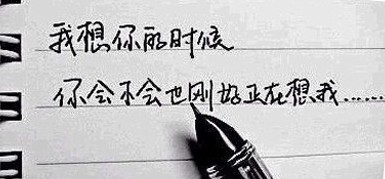 我想你的时候
你会不会也刚好正在想我......